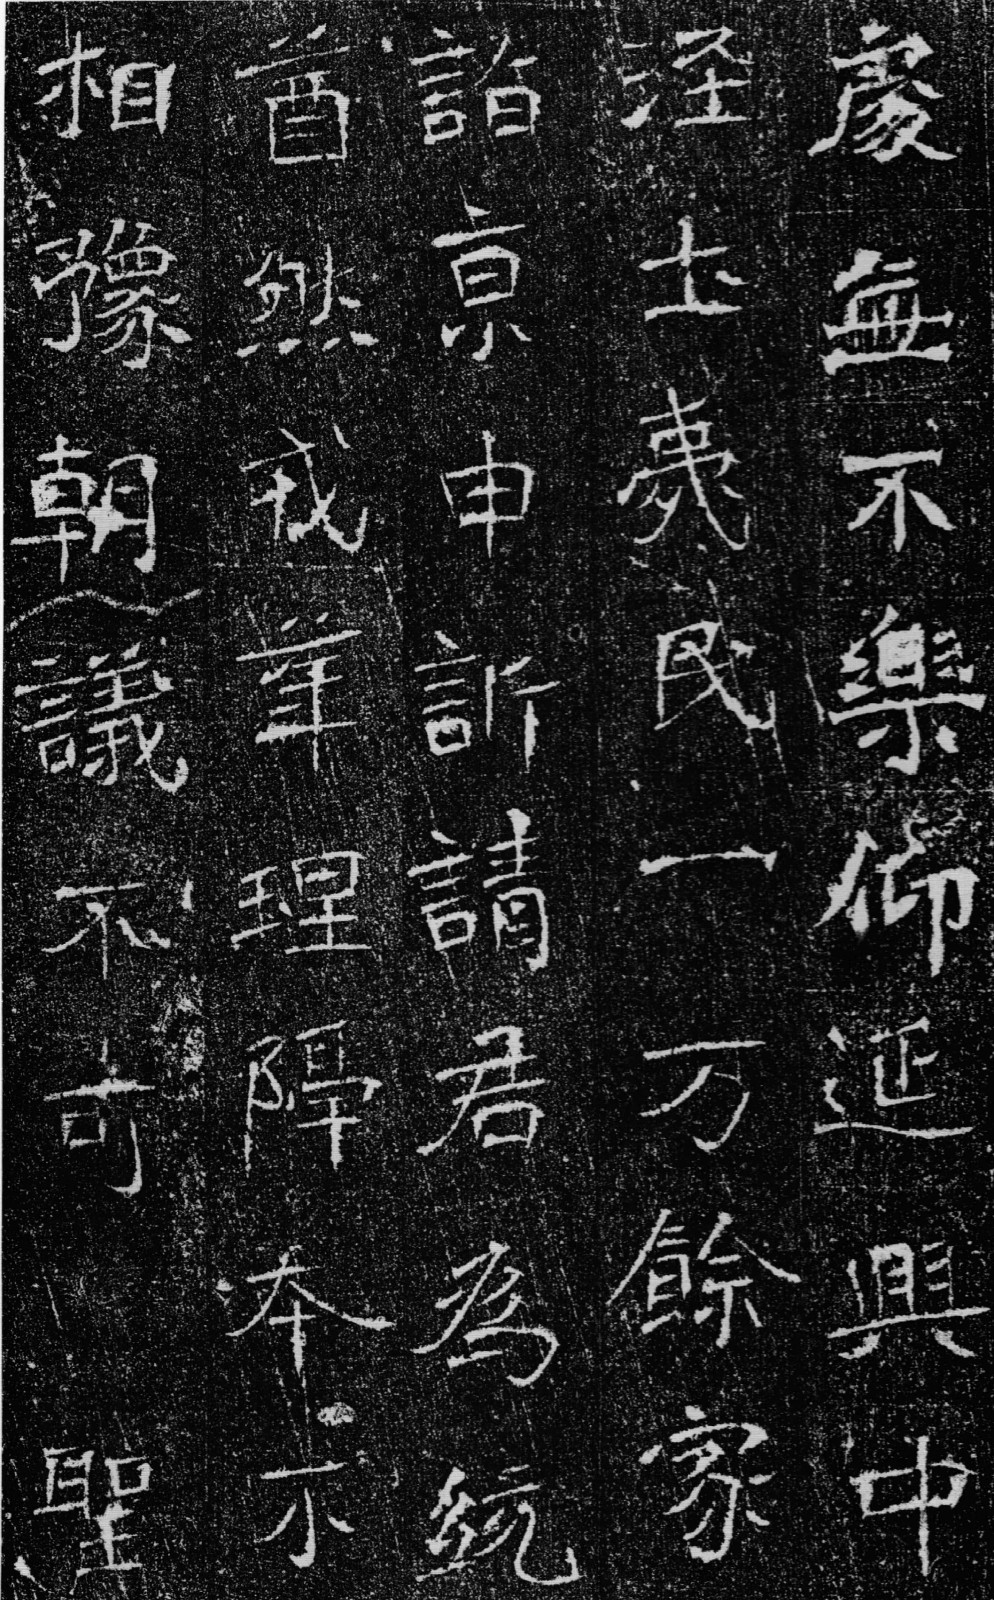 處無不樂仰延興中
涇土夷民一万餘家
詣京申訴請君為統
酋然戎華理隔本不
相豫朝議不可聖